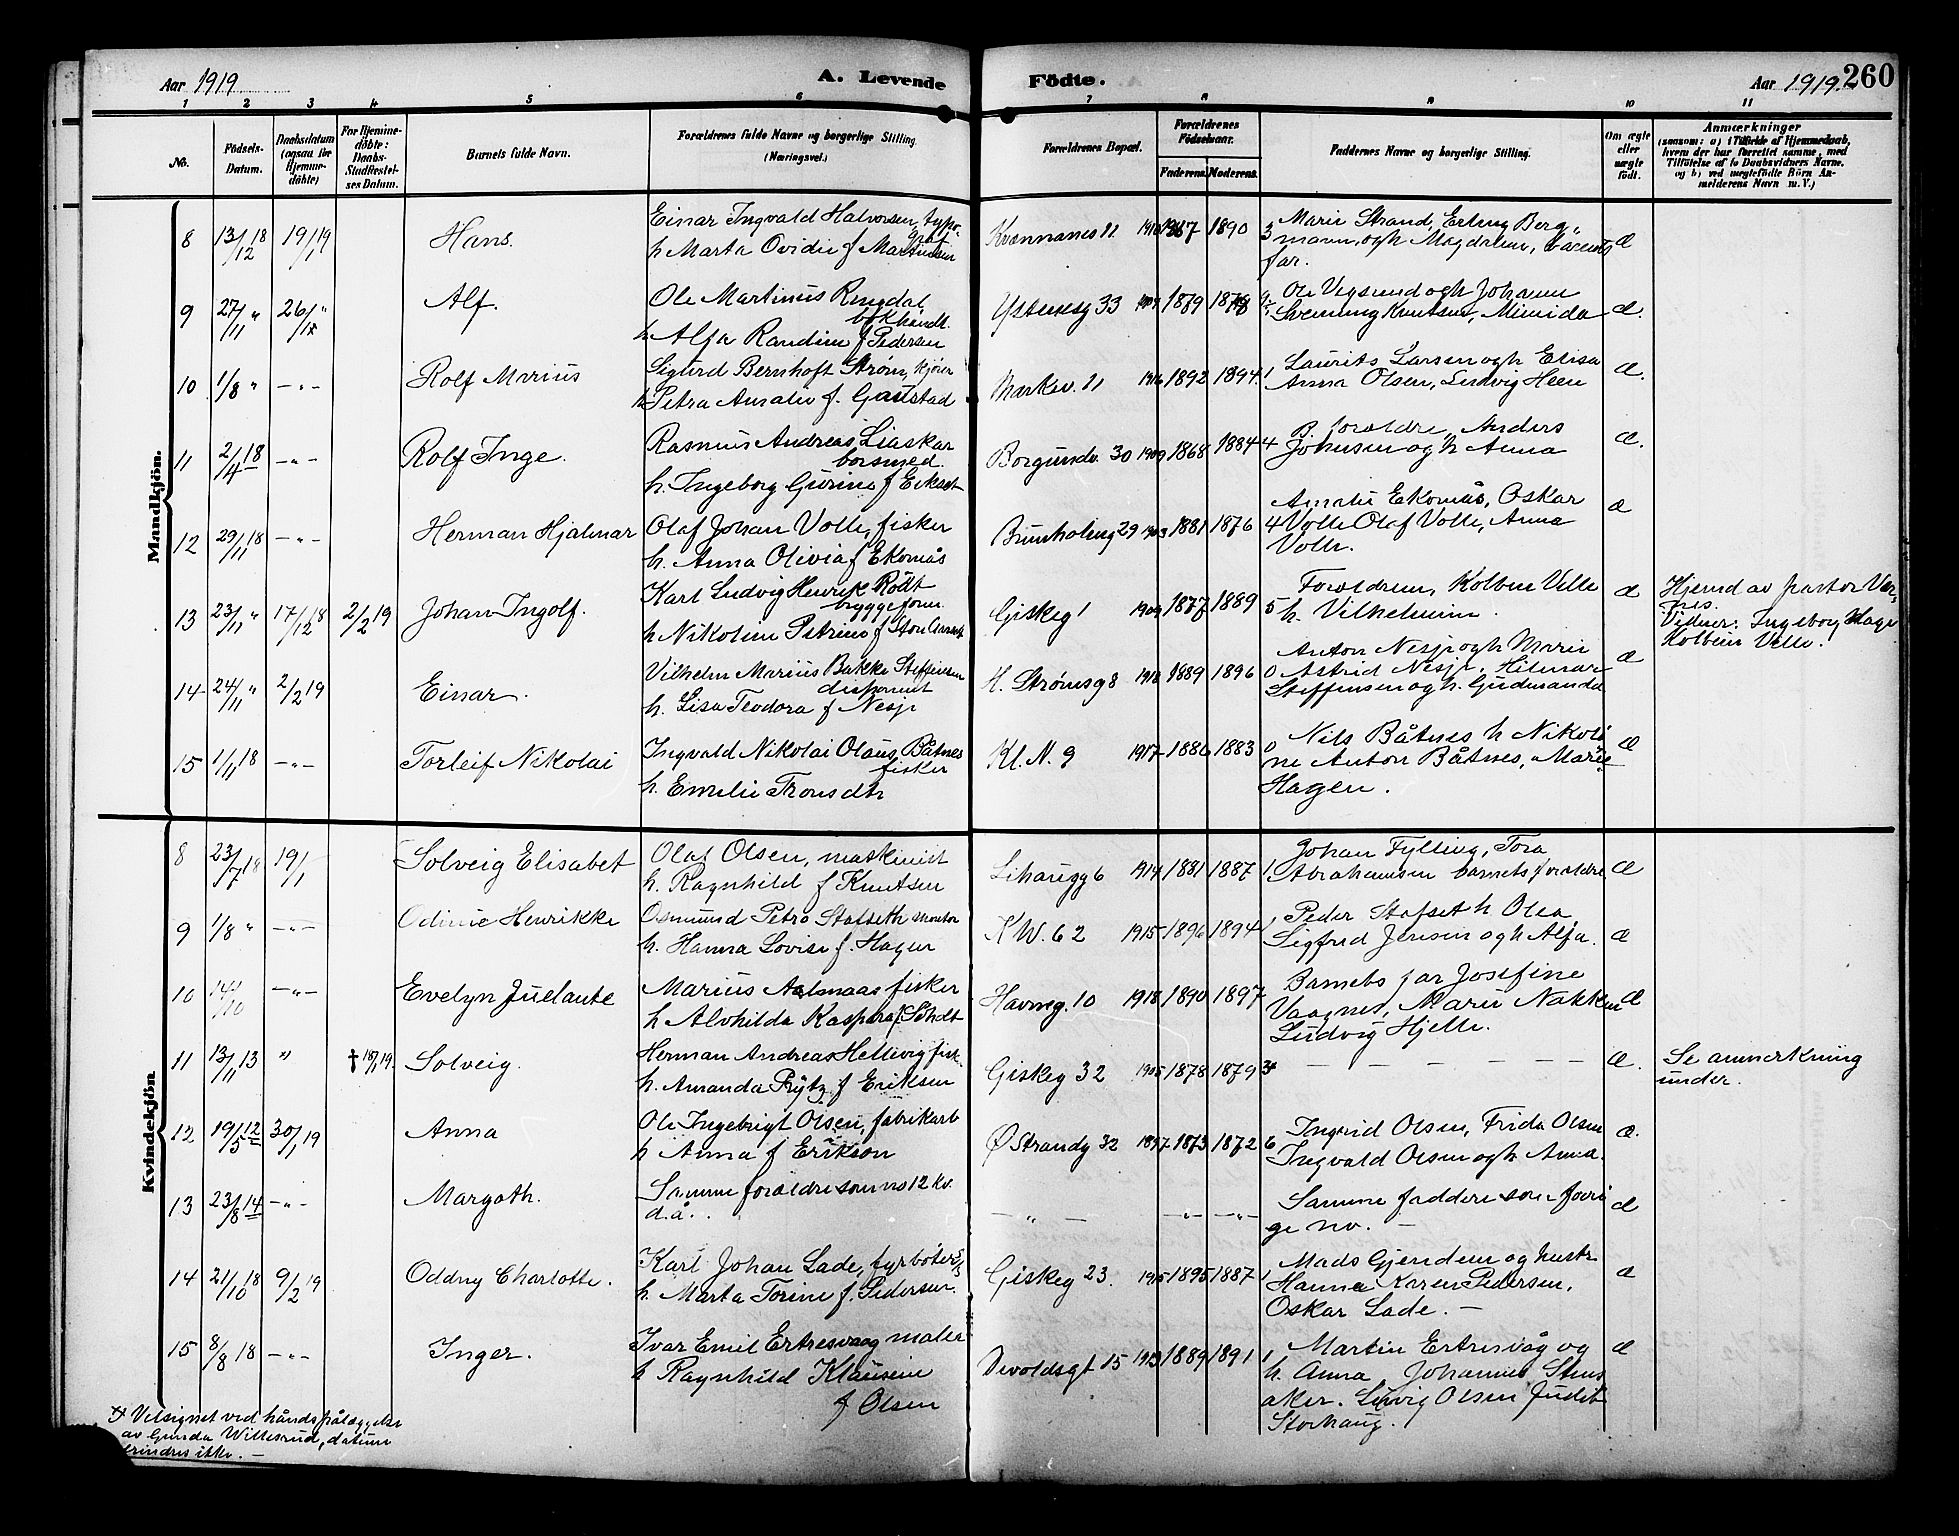 Aar 1919
A. Levende
Födte.
Aar 1919.
260
1 2 3 4 5 6 7 8 9 10 11
No.
Födsels-
Datum.
Daabsdatum
(ogsaa for
Hjemme-
döbte)
For Hjemme-
döbte:
Daabs-
Stadfæstel-
ses Datum.
Barnets fulde Navn.
Forældrenes fulde Navne og borgerlige Stilling
(Næringsvei.)
Forældrenes Bopæl.
Forældrenes
Födselsaar.
Faderens.
Moderens.
Faddernes Navne og borgerlige Stilling.
Om ægte
eller
uægte
födt.
Anmærkninger
(saasom: a) i Tilfælde af Hjemmedaab,
hvem der har forrettet samme, med
Tilföielse af to Daabsvidners Navne,
og b) ved uægtefödte Börn An-
melderens Navn m. V.)
Mandkjön.
8 13/12 18 19/1 19 Hans.
Einar Ingvald Halvorsen, typo-
graf
h Marta Ovidie f Martinsen
Kvennanes 11 1890 3
Marie Strand, Erling Berg-
mann, og h Magdalene, barnets
far.
æ
9 27/11 " 26/1 " Alf.
Ole Martinus Ringdal
bokhandl.
h Alfa Randine f Pedersen
33 1879
Svenning Knutsen, Minida
æ.
10 1/8 " -"- Rolf Marius
Sigurd Bernhoft Strøm, kjører
h Petra Amalie f. Gaustad
Marksv. 11 1916 1892 1894 1
Laurits Larsen og h Elisa
Anna Olsen, Ludvig Heen
æ.
11 2/4 18 -"- Rolf Inge.
Rasmus Andreas Liaskar
h. Ingeborg Gurine f Eikset
Borgundv. 30 1909 1868 1884 4
B. foreldre, Anders
Johnsen og h Anna
æ.
12 29/11 18 -"- Herman Hjalmar
Olaf Johan Volle, fisker
h. Anna Olivia f Ekornås
Brunholmg 29 1903 1881 1876 4
Amalie Ekornås, Oskar
Volle Olaf Volle, Anna
Volle.
æ
13 23/11 " 17/12 18 2/2 19 Johan Ingolf.
Karl Ludvig Henrik Rödt
byggeform.
h Nikoline Petrine f
Giskeg 1 1909 1877 1889 5
Foreldrene, Kolbein Velle
h. Vilhelmine.
æ
Hjemd av pastor Vær-
nes.
Vidner: Ingeborg Hage
Kolbein Velle.
14 24/11 " 2/2 19 Einar.
Vilhelm Marius Bakke Steffensen
disponent
h. Lisa Teodora f Nesje
K. Strømsg 8 1918 1889 1896 0
Anton Nesje og h Marie
Astrid Nesje, Hilmar
Steffensen og h. Gudmanda
æ
15 1/11 18 -"- Torleif Nikolai
Ingvald Nikolai Olaus Båtnes
fisker
h. Emelie Tronsdtr
Kl. N. 9 1917 1886 1883 0
Nils Båtnes h Nikoli
ne Anton Båtnes, Marie
Hagen.
æ
Kvindekjön
8 23/7 18 19/1 Solveig Elisabet
Olaf Olsen, maskinist
h. Ragnhild f Knutsen
6 1914 1881 1887 1
Johan Fylling, Tora
Abrahamsen barnets foreldre
æ
9 1/8 " -"- Odinie Henrikke
Osmund Petro Stafseth montør
h. Hanna Lovise f. Hagen
K W. 62 1915 1896 1894 1
Peder Stafset h Olea
Sigfred Jensen og h Alfa.
æ
10 14/10 -"- Evelyn Juelante
Marius Aalmaas fisker
h Alvhilda Kaspara f
Havneg. 10 1918 1890 1897
Barnets far Josefine
Vaagnes, Marie Nakken
Ludvig Hjelle.
æ
11 13/11 13 " † 18/1 19. Solveig.
Herman Andreas Hellevig fisk.
h. Amanda Rytz f Eriksen
Giskeg 32 1905 1878 1879
- - - - -
æ.
Se anmerkning
under.
12 19/5 12 30/1 19 Anna
Ole Ingebrigt Olsen, fabrikarb
h Anna f Erikson
Ø Strandg 32 1897 1873 1872 6
Ingrid Olsen, Frida Olsen
Ingvald Olsen og h Anna.
æ.
13 23/8 14 -"- Margoth.
Samme foreldre som no 12 kv.
d.å.
- " - -"- -"-
Samme faddere som forri
ge no. -
æ
14 21/10 18 9/2 19 Oddny Charlotte.
Karl Johan Lade, fyrböter
h. Marta Torine f. Pedersen.
Giskeg 23. 1915 1895 1887 1
Mads Gjendem og hustr
Hanna Karen Pedersen,
Oskar Lade. -
æ
15 8/8 18 -"- Inger.
Ivar Emil Ertresvaag maler
h Ragnhild Klausine
f Olsen
Devoldsgt 15 1913 1889 1891 1
Martin Ertresvåg og
h. Anna Johannes Stens
aker. Solvig Olsen Judit
Storhaug.
æ
Velsignet ved håndspålæggelse
av Gunda Wittesrud, datum
erindres ikke. -